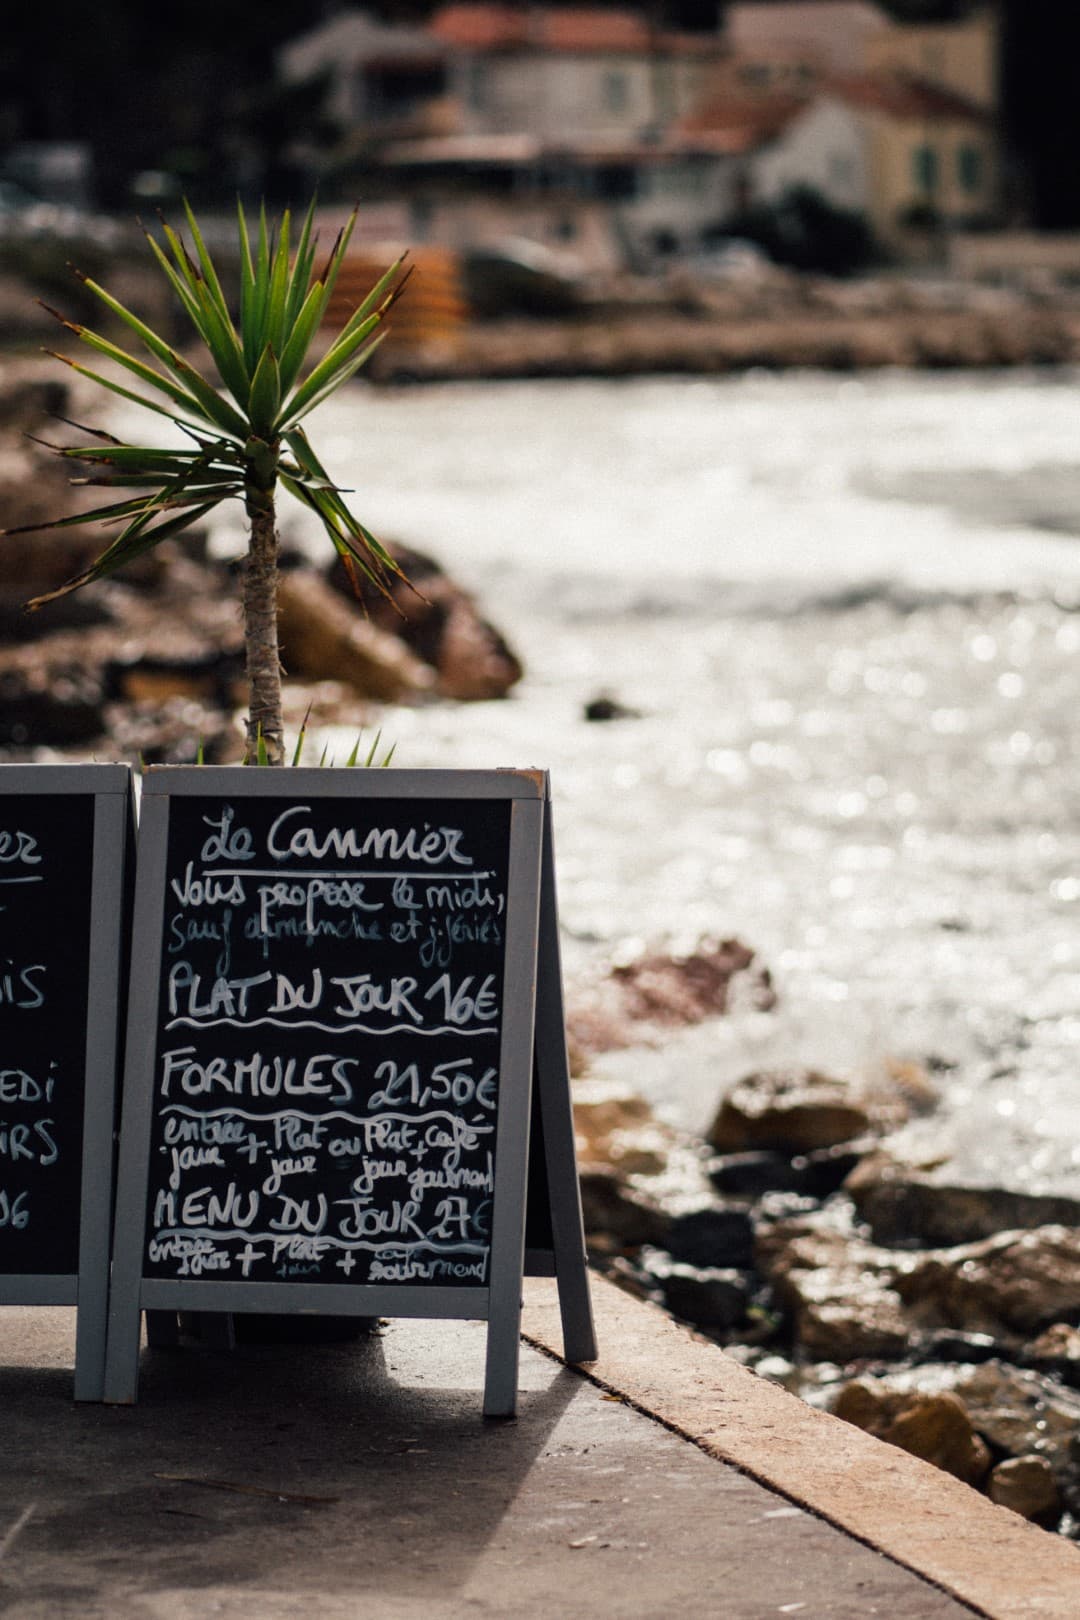 er
IS
EDI
IRS
06
Le Cannier
Vous propose le midi,
Sauf dimanche et j.fériés
PLAT DU JOUR 16€
FORMULES 21,50€
entrée + Plat ou Plat + Café
jour jour jour gourmand
MENU DU JOUR 27€
entrée + Plat + café
jour jour gourmand